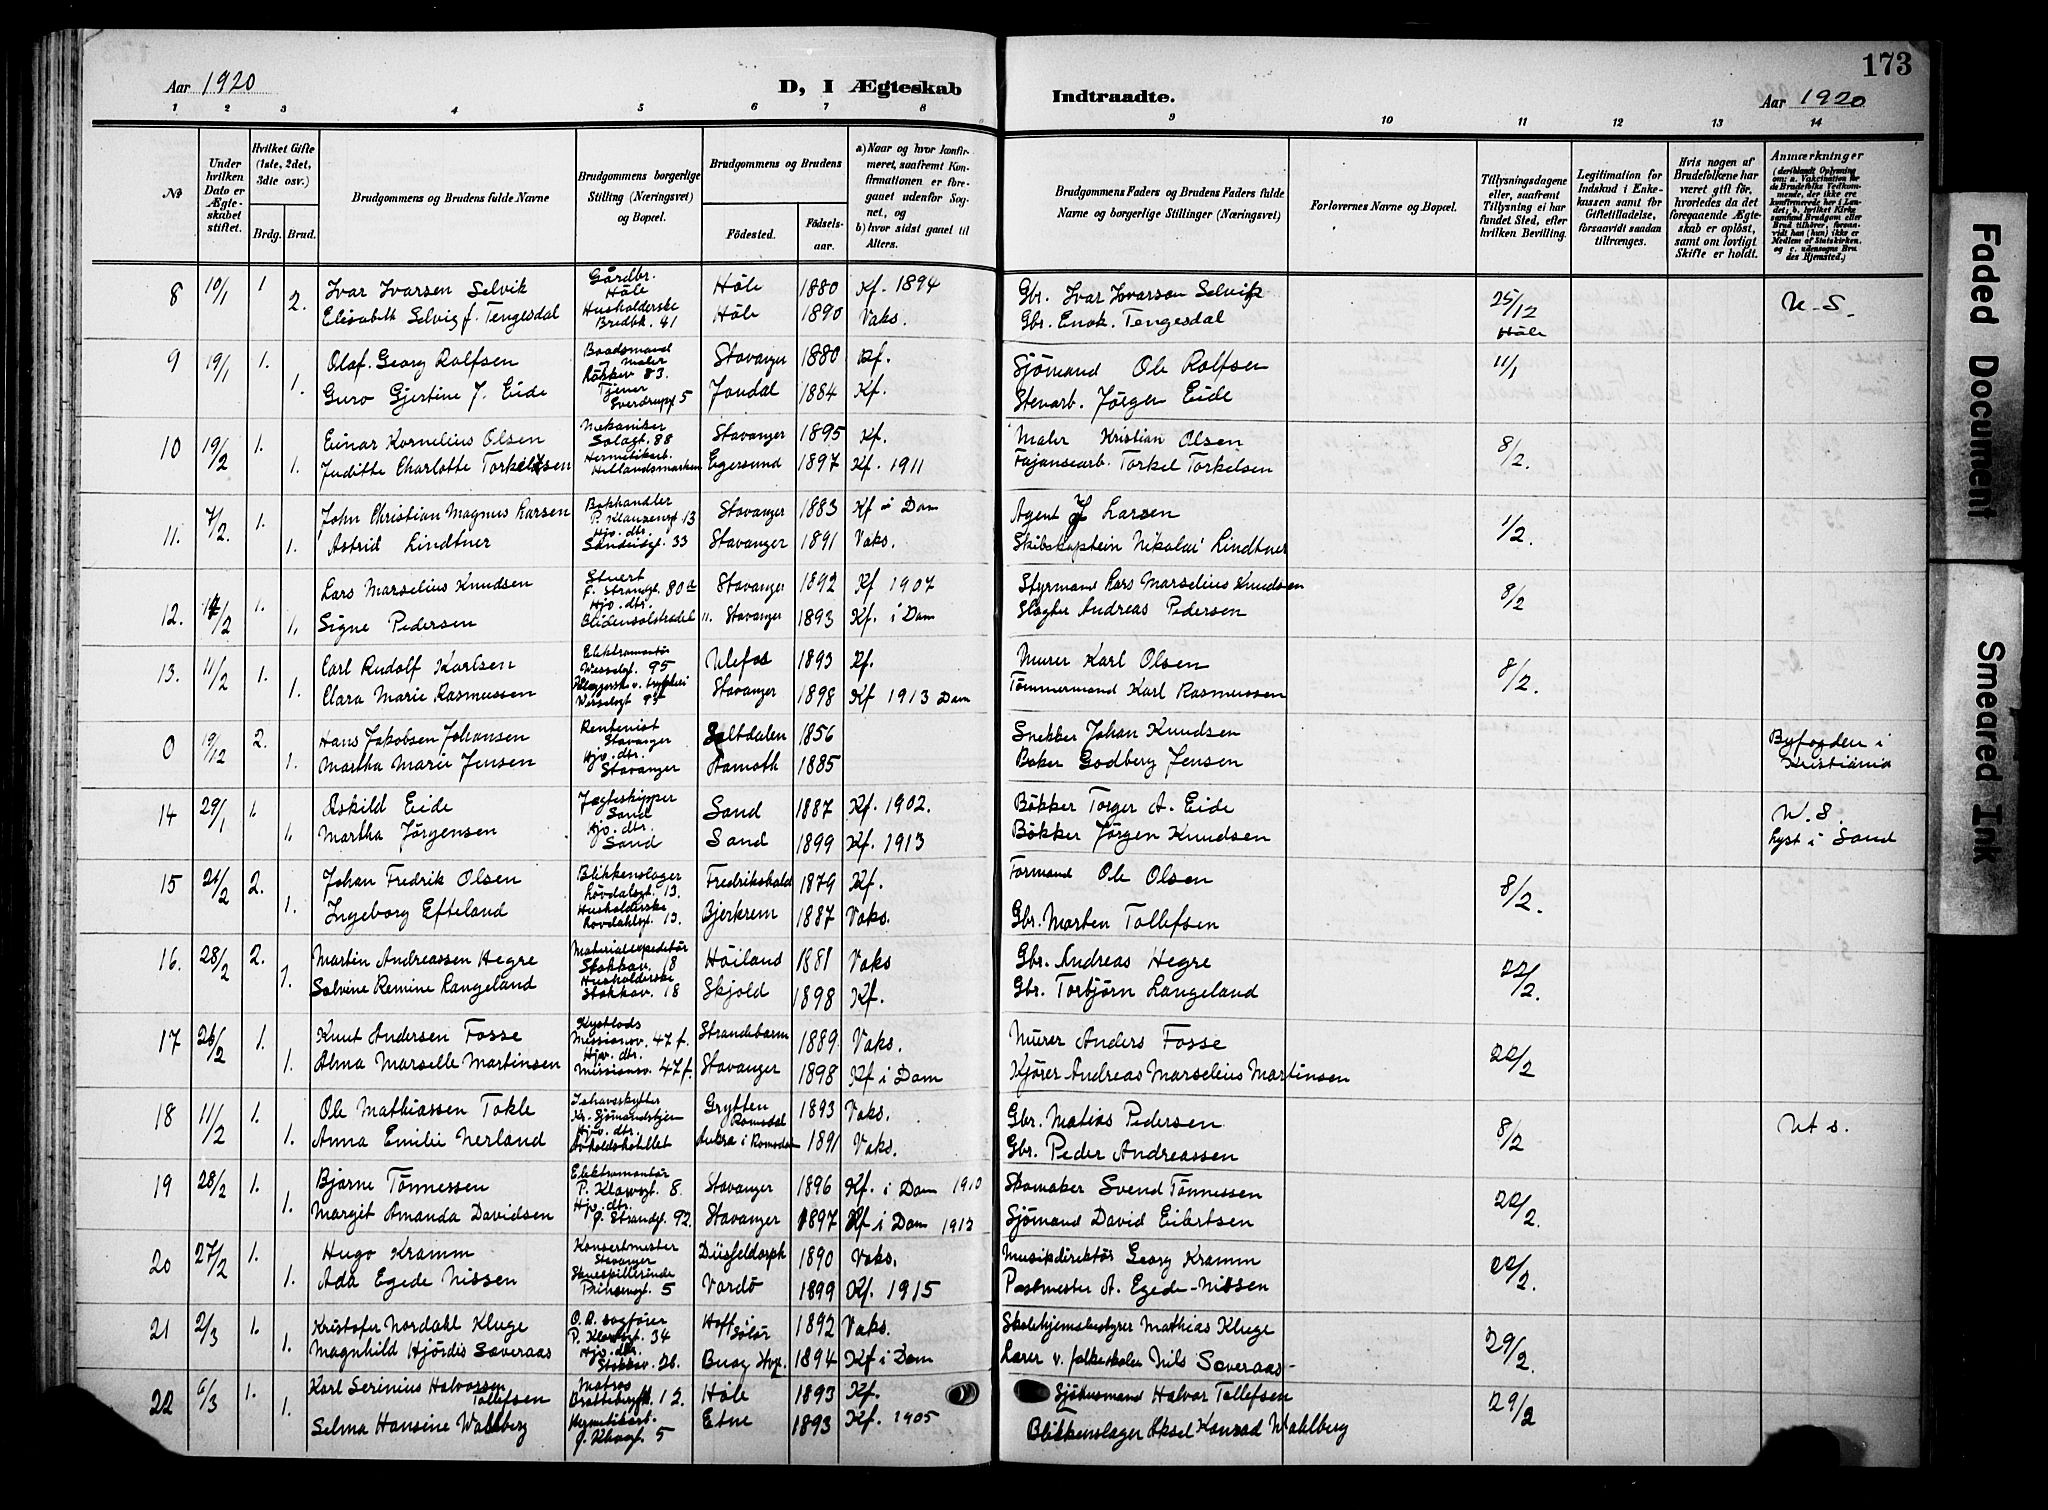 173
Aar 1920
D, I Ægteskab
Indtraadte.
Aar 1920
1 2 3 4 5 6 7 8 9 10 11 12 13 14
No
Under hvilken Dato er Ægteskabet stiftet.
Hvilket Gifte (1ste, 2det, 3die osv.)
Brdg. Brud.
Brudgommens og Brudens fulde Navne
Brudgommens borgerlige Stilling (Næringsvei) og Bopæl.
Brudgommens og Brudens
Fødested. Fødselsaar.
a) Naar og hvor konfirmeret, saafremt Konfirmationen er foregaaet udenfor Sognet, og
b) hvor sidst gaaet til Alters.
Brudgommens Faders og Brudens Faders fulde Navne og borgerlige Stillinger (Næringsvei)
Forlovernes Navne og Bopæl.
Tillysningsdagene eller, saafremt Tillysning ei har fundet Sted, efter hvilken Bevilling.
Legitimation for Indskud i Enkekassen samt for Giftetilladelse, forsaavidt saadan tiltrænges.
Hvis nogen af Brudefolkene har været gift før, hvorledes da det foregaaende Ægteskab er opløst, samt om lovligt Skifte er holdt.
Anmærkninger (deriblandt Oplysning om: a. Vaccination for de Brudefolks Vedkommende, der ikke ere konfirmerede her i Landet; b. hvilket Kirkesamfund Brudgom eller Brud tilhører, forsaavidt han (hun) ikke er Medlem af Statskirken, og c. udensogns Brudes Hjemsted.)
8 10/1 1 Ivar Ivarsen Selvik Gårdbr. Höle Höle 1880 Kf. 1894 Gbr. Ivar Ivarsen Selvik 25/12 Höle U-S.
2. Elisabeth Selvig f. Tengesdal Husholderske Bredbk. 41 Höle 1890 Vaks. Gbr. Enok. Tengesdal
9 19/1 1. Olaf Georg Rolfsen Baadsmand Maler 83. Stavanger 1880 Kf. Sjömand Ole Rolfsen 11/1
1. Guro Gjertine J. Eide Tjener 5 Jondal 1884 Kf. Stenarb. Jörgen Eide
10 19/2 1. Einar Kornelius Olsen Mekaniker Solagt. 88 Stavanger 1895 Kf. Maler Kristian Olsen 8/2.
1. Juditte Charlotte Torkelsen Hermetikarb. Hillandsmarken Egersund 1897 Kf. 1911 Fajansearb. Torkel Torkelsen
11. 7/2. 1. John Christian Magnus Larsen Bokhandler P. Klausensgt 13 Stavanger 1883 Kf i Dom Agent J Larsen 1/2.
1. Astrid Lindtner Hjv. dtr. Sandvigt. 33 Stavanger 1891 Vaks. Skibskaptein Nikolai Lindtner
12. 14/2 1. Lars Marselius Knudsen Stuert 80a Stavanger 1892 Kf 1907 Styrmand Lars Marselius Knudsen 8/2
1. Signe Pedersen Hjv. dtr. 11. Stavanger 1893 Kf. i Dom Slagter Andreas Pedersen
13. 11/2 1. Carl Rudolf Karlsen Elektromontör Wesselgt. 95 Ulefos 1893 Kf. Murer Karl Olsen 8/2.
1. Clara Marie Rasmussen Wesselsgt 95 Stavanger 1898 Kf 1913 Dom Tömmermand Karl Rasmussen
0 19/12 2. Hans Jakobsen Johansen Rentenist Stavanger Saltdalen 1856 Snekker Johan Knudsen Byfogden i Kristiania
1. Martha Marie Jensen Hjv. dtr. Stavanger Aamoth 1885 Baker Godberg Jensen
14 29/1 1. Askild Eide Jagteskipper Sand Sand 1887 Kf. 1902. Bökker Torger A. Eide U.S. Lyst i Sand
1. Martha Jörgensen Hjv. dtr. Sand Sand 1899 Kf. 1913 Bökker Jörgen Knudsen
15 21/2 2. Johan Fredrik Olsen Blikkenslager Lövdalsgt. 13. Fredrikshald 1879 Kf. Formand Ole Olsen 8/2.
1. Ingeborg Efteland Husholderske Lövdahlsgt. 13. Bjerkrem 1887 Vaks. Gbr. Morten Tollefsen
16. 28/2 2. Martin Andreassen Hegre Materialexpeditör Stokkav. 18 Höiland 1881 Vaks Gbr. Andreas Hegre 22/2.
1. Solvine Remine Langeland Husholderske Stokkav. 18 Skjold 1898 Kf. Gbr. Torbjörn Langeland
17 26/2 1. Knut Andersen Fosse Kystlods Missionsv. 47 f. Strandebarm 1889 Vaks. Murer Anders Fosse 22/2
1. Alma Marselle Martinsen Hjv. dtr. Missionsv. 47 f. Stavanger 1898 Kf i Dom Kjörer Andreas Marselius Martinsen
18 11/2 1. Ole Mathiassen Tokle Ishavsskytter Kr. Sjömandshjem Grytten Romsdal 1893 Vaks. Gbr. Matias Pedersen 8/2 Ut s.
1. Anna Emilie Nerland Hjv. dtr. Aukra i Romsdal 1891 Vaks. Gbr. Peder Andreassen
19 28/2 1. Bjarne Tönnessen Elektromontör P. Klowsgt. 8. Stavanger 1896 Kf. i Dom 1910 Skomaker Svend Tönnessen 22/2.
1. Margit Amanda Davidsen Hjv. dtr. Strandgt. 92. Stavanger 1897 Kf i Dom 1912 Sjömand David Eilertsen
20 27/2 1. Hugo Kramm Konsertmester Stavanger Düsseldorph 1890 Vaks. Musikdirektör Georg Kramm 22/2.
1. Ada Egede Nissen Skuespillerinde Prinsensgt. 5 Vardö 1899 Kf. 1915 Postmester A. Egede-Nissen
21 2/3 1. Kristofer Nordahl Kluge O. R. sagförer P. Klowsgt. 34 Hoff i Solör 1892 Vaks. Skolehjemsbestyrer Mathias Kluge 29/2.
1. Magnhild Hjördis Soveraas Hjv. dtr. Stokkav. 26. 1894 Kf i Dom Lærer v. folkeskolen Nils Soveraas
22 6/3 1. Karl Serinius Halvorsen Tollefsen Matros 12. Höle 1893 Kf. Halvor Tollefsen 29/2
1. Selma Hansine Wahlberg Hermetikarb. 5 Etne 1893 Kf. 1905 Blikkenslager Aksel Konrad Wahlberg
Faded Document
Smeared Ink